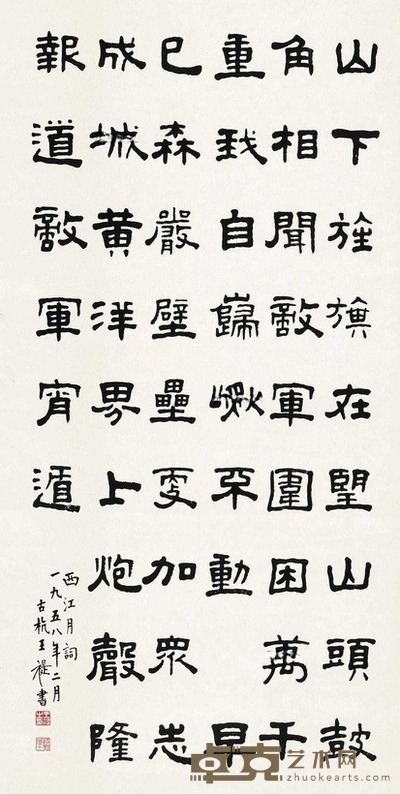 山下旌旗在望山頭鼓
角相聞敵軍圍困萬千
重我自巋然不動早
已森嚴壁壘更加衆志
成城黃洋界上炮聲隆
報道敵軍宵遁
西江月詞
一九五八年二月
古杭王禔書
卓克艺术网
zhuokearts.com